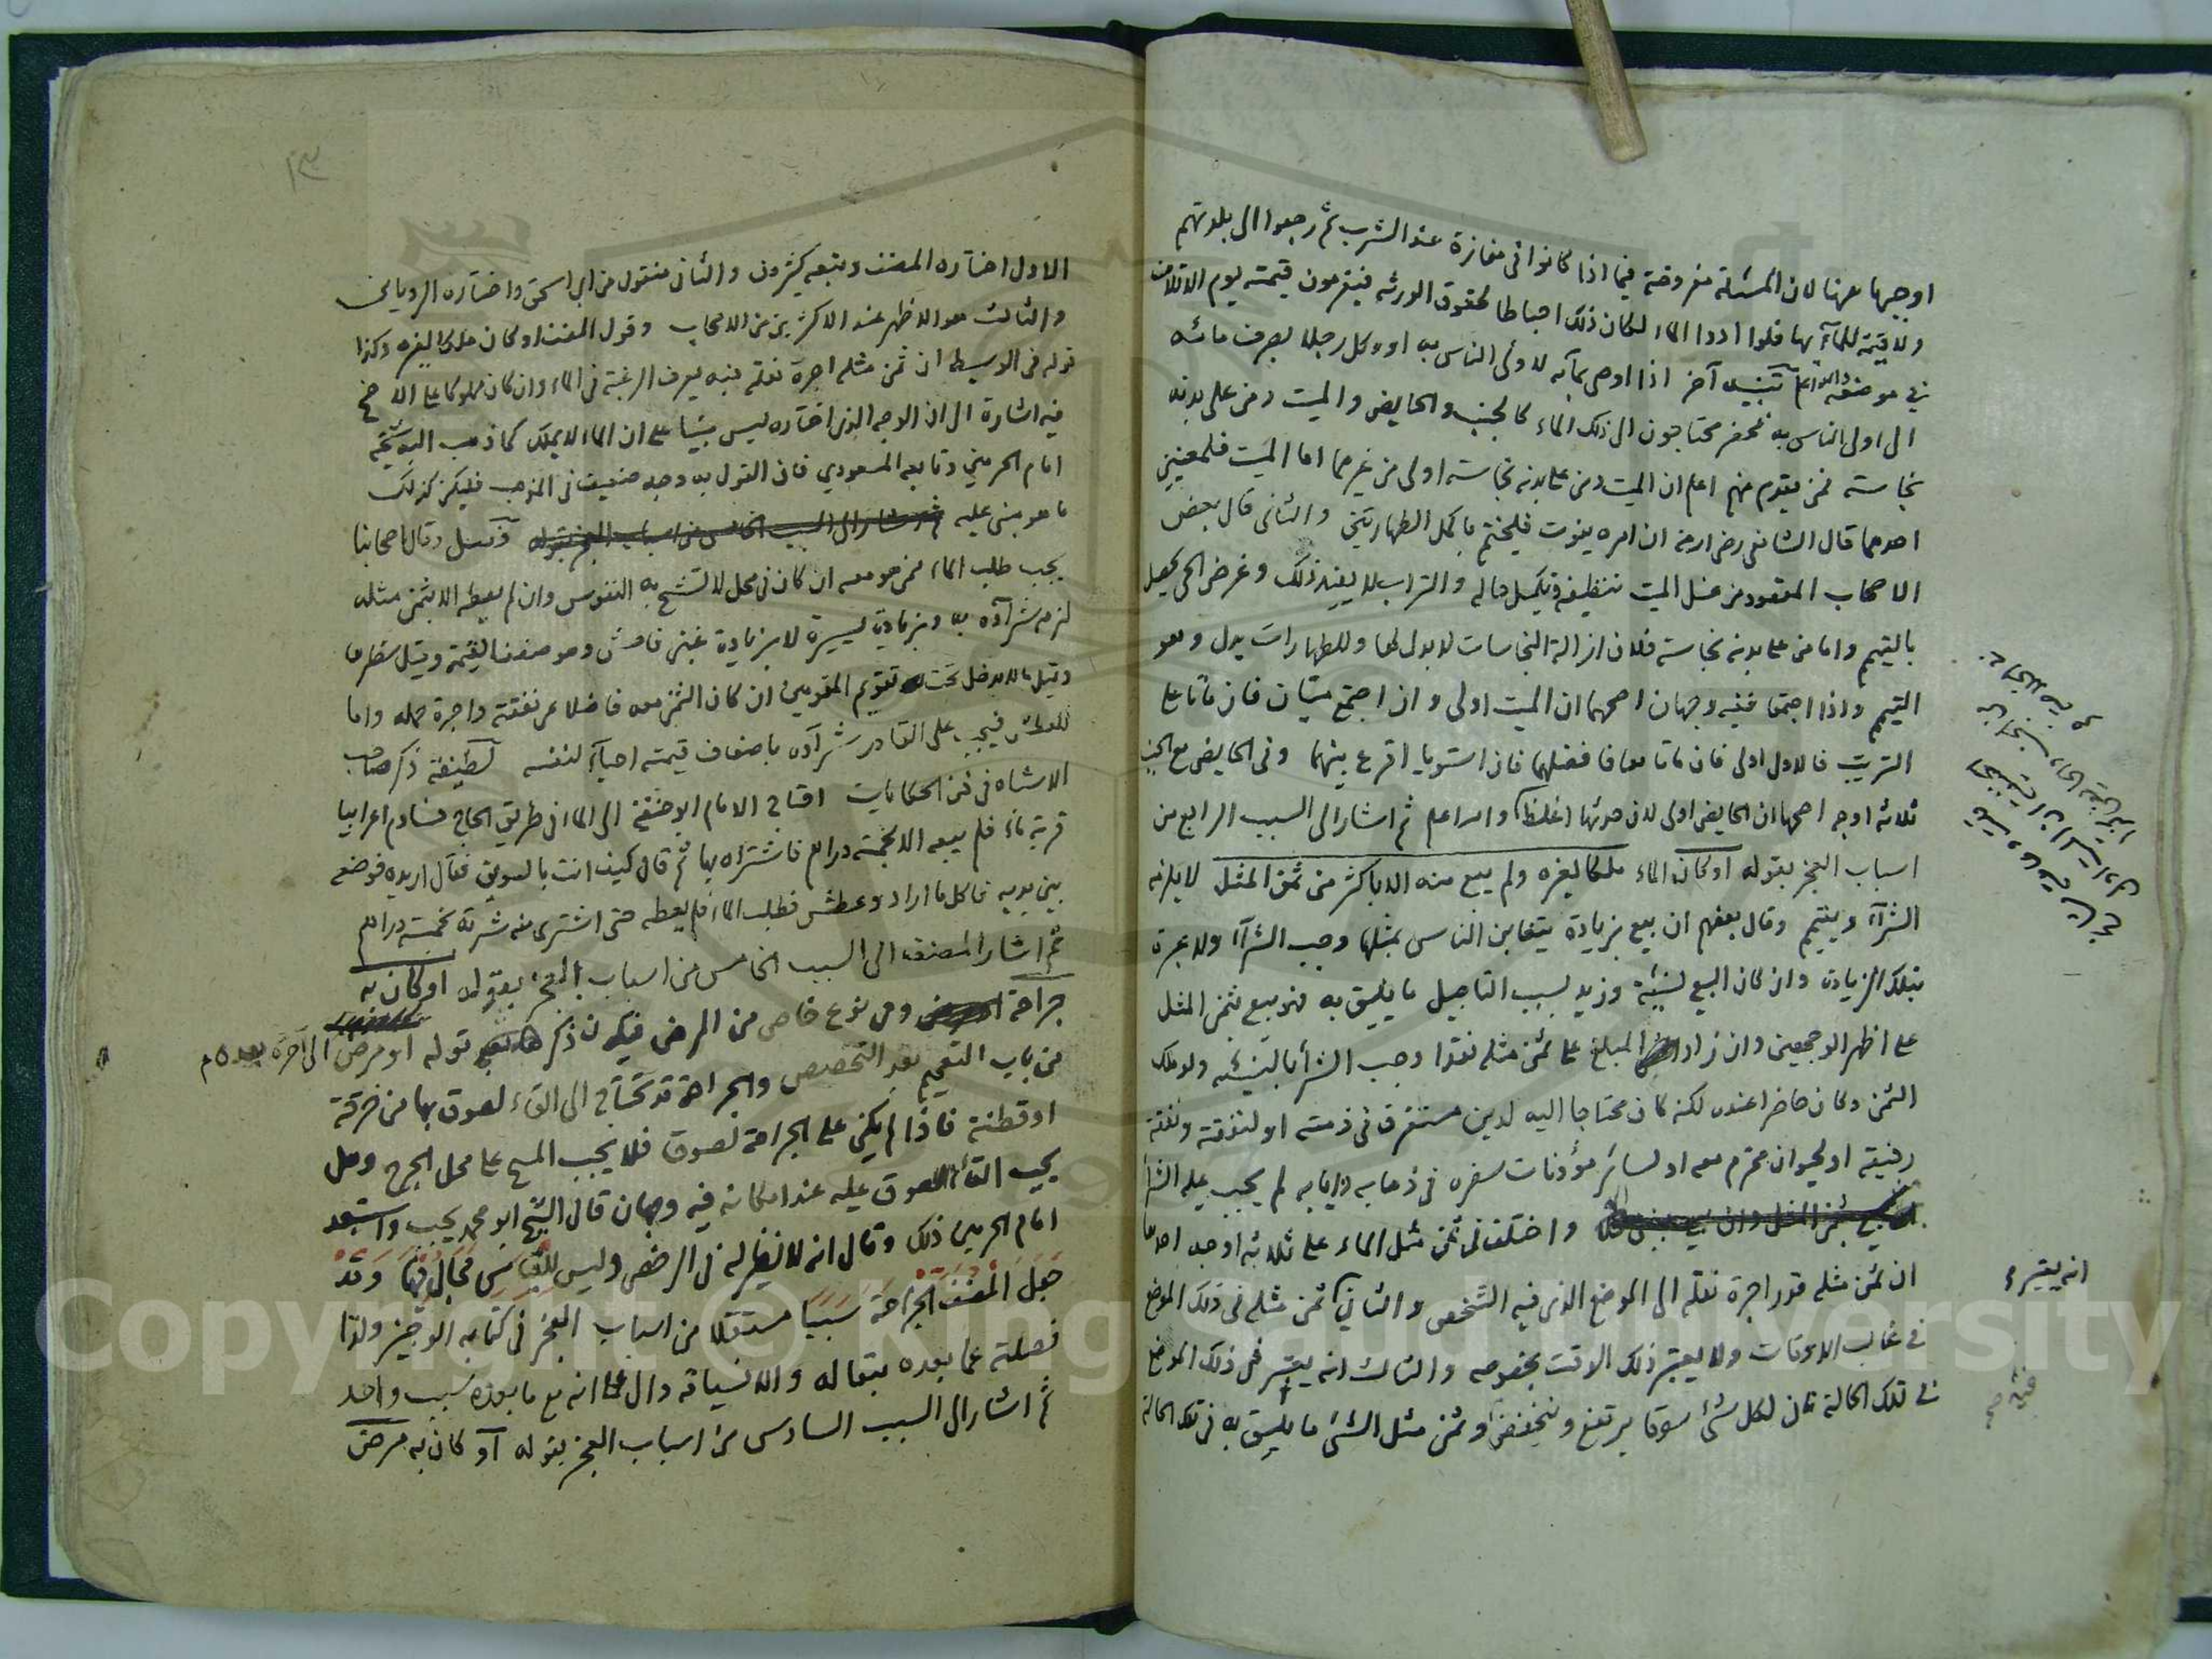 اوجبها هرنا لان المسئلة مفروضة فيما اذا كانوا في مفازة عند الشرب ثم رجعوا الى بلدتهم
ولا قيمة للمآء بها فلو ادوا الماء لكان ذلك احباطا لحقوق الورثة فيغرمون قيمته يوم الاتلاف
في موضعه والله اعلم تنبيه آخر اذا اوصى بمآئه لاولى الناس به او وكل رجلا بصرف مائه
الى اولى الناس به فحضر محتاجون الى ذلك الماء كالجنب والحايض والميت ومن على بدنه
نجاسة فمن يقدم منهم اعلم ان الميت ومن على بدنه نجاسة اولى من غيرهما اما الميت فلمعنيين
احدهما قال الشافعي رضى الله عنه ان امره يفوت فليختم باكمل الطهارتين والثاني قال بعض
الاصحاب المقصود من غسل الميت تنظيفه وتكميل حاله والتراب لا يفيد ذلك وغرض الحي يحصل
بالتيمم واما من على بدنه نجاسة فلان ازالة النجاسات لا بدل لها وللطهارات بدل وهو
التيمم واذا اجتمعا ففيه وجهان اصحهما ان الميت اولى وان اجتمع ميتان فان ماتا على
الترتيب فالاول اولى فان ماتا معا فافضلهما فان استويا اقرع بينهما وفي الحايض مع الجنب
ثلاثة اوجه اصحها ان الحايض اولى لان حدثها اغلظ والله اعلم ثم اشار الى السبب الرابع من
اسباب العجز بقوله او كان الماء ملكا لغيره ولم يبع منه الا باكثر من ثمن المثل لا يلزمه
الشرآء ويتيمم وقال بعضهم ان بيع بزيادة يتغابن الناس بمثلها وجب الشرآء ولا عبرة
بتلك الزيادة وان كان البيع بنسيئة وزيد بسبب التاجيل ما يليق به فهو بيع بثمن المثل
على اظهر الوجهين وان زاد المبلغ على ثمن مثله نقدا وجب الشرأ بالنسيئه ولو ملك
الثمن وكان حاضرا عنده لكنه كان محتاجا اليه لدين مستغرق في ذمته او لنفقته ونفقة
رفيقه او لحيوان محترم معه او لسائر مؤنات سفره في ذهابه وايابه لم يجب عليه الشرا
واختلف في ثمن مثل الماء على ثلاثة اوجه احدها
ان ثمن مثله قدر اجرة نقله الى الموضع الذي فيه الشخص والثاني ثمن مثله في ذلك الموضع
في غالب الاوقات ولا يعتبر ذلك الوقت بخصوصه والثالث انه يعتبر في ذلك الموضع
في تلك الحالة فان لكل شئ سوقا يرتفع وينخفض وثمن مثل الشئ ما يليق به في تلك الحالة
انه يعتبر
١٣
الاول اختاره المصنف وتبعه كثيرون والثاني منقول من ابي اسحق واختاره الروياني
والثالث هو الاظهر عند الاكثرين من الاصحاب وقول المصنف او كان ملكا لغيره وكذا
قوله في الوسيط ان ثمن مثله اجرة نقله فيه يعرف الرغبة في الماء وان كان مملوكا على الاصح
فيه اشارة الى ان الوجه الذي اختاره ليس مبنيا على ان الماء لا يملك كما ذهب اليه شيخه
امام الحرمين وتابعه المسعودي فان القول به وجه ضعيف في المذهب فليكن كذلك
ما هو مبنى عليه ثم اشار الى السبب الخامس من اسباب العجز بقوله فصل وقال اصحابنا
يجب طلب الماء ممن هو معه ان كان في محل لا تشح به النفوس وان لم يعطه الا بثمن مثله
لزمه شرآؤه به وبزيادة يسيرة لا بزيادة غبن فاحش وهو ضعف القيمة وقيل شطرها
وقيل ما لا يدخل تحت تقويم المقومين ان كان الثمن معه فاضلا عن نفقته واجرة حمله واما
للعطش فيجب على القادر شرآؤه باضعاف قيمته احيآء لنفسه لطيفة ذكر صاحب
الاشباه في فن الحكايات احتاج الامام ابو حنيفة الى الماء في طريق الحاج فساوم اعرابيا
قربة ماء فلم يبعه الا بخمسة دراهم فاشتراه بها ثم قال كيف انت بالسويق فقال اريده فوضعه
بين يديه فاكل ما اراد وعطش فطلب الماء فلم يعطه حتى اشترى منه شربة بخمسة دراهم
ثم اشار المصنف الى السبب الخامس من اسباب العجز بقوله او كان به
جراحة وهى نوع خاص من المرض فيكون ذكر قوله او مرض الى آخره بعده
من باب التعميم بعد التخصيص والجراحة قد تحتاج الى القاء لصوق بها من خرقة
او قطنة فاذا لم يكن على الجراحة لصوق فلا يجب المسح على محل الجرح وهل
يجب القاء اللصوق عليه عند امكانه فيه وجهان قال الشيخ ابو محمد يجب واستبعد
امام الحرمين ذلك وقال انه لا نظير له في الرخص وليس للقياس مجال فيها وقد
جعل المصنف الجراحة سببا مستقلا من اسباب العجز في كتابه الوجيز ولذا
فصلته عما بعده بقاله والا فسياقه دال على انه مع ما بعده سبب واحد
ثم اشار الى السبب السادس من اسباب العجز بقوله او كان به مرض
Copyright © King Saud University